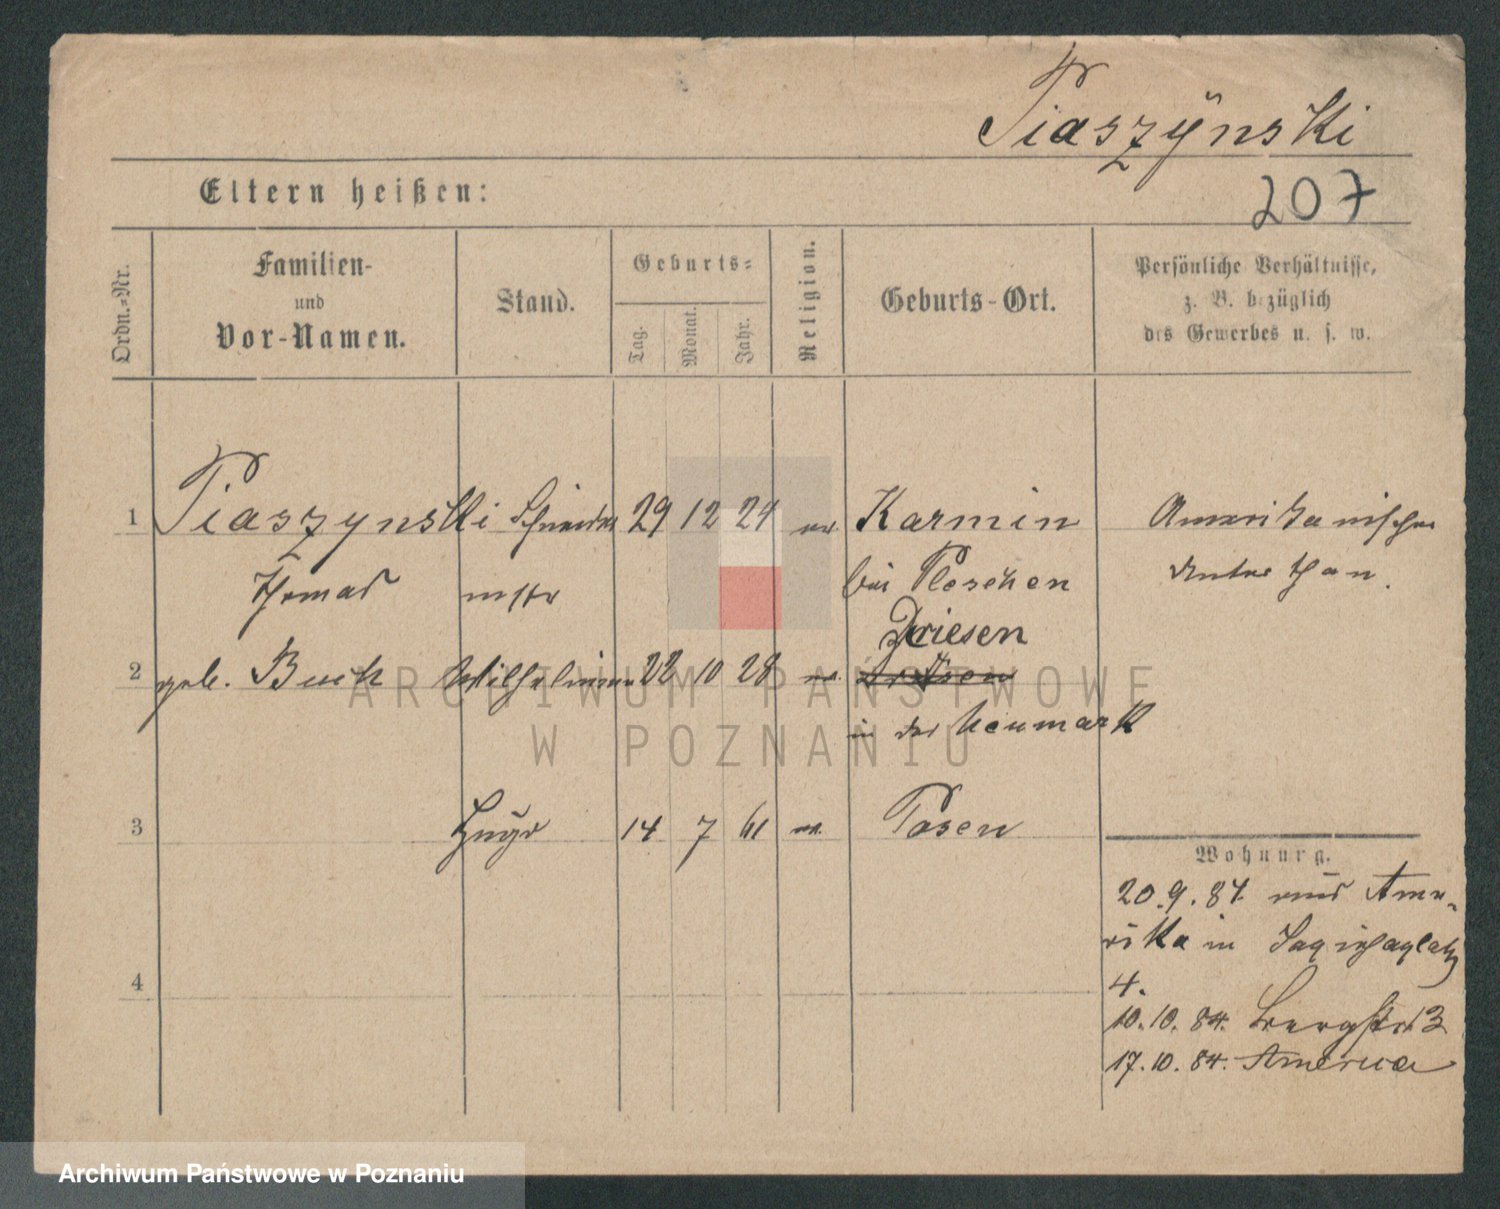 Piaszÿnski
207
Eltern heißen:
Ordn.-Nr.
Familien-
und
Vor-Namen.
Stand.
Geburts-
Tag.
Monat.
Jahr.
Religion.
Geburts-Ort.
Persönliche Verhältnisse,
z. B. bezüglich
des Gewerbes u. s. w.
1 Piaszynski Schneider 29 12 24 Karmin Amerikanischer
Thomas mstr bei Pleschen Unterthan.
Driesen
2 geb. Buch Wilhelmine 22 10 28 Driesen
in der Neumark
3 Hugo 14 7 61 Posen
Wohnung.
20.9.84. aus Ame-
rika in Sapiehaplatz
4.
4
10.10.84. Bergstr. 13
17.10.84. America
ARCHIWUM PAŃSTWOWE
W POZNANIU
Archiwum Państwowe w Poznaniu